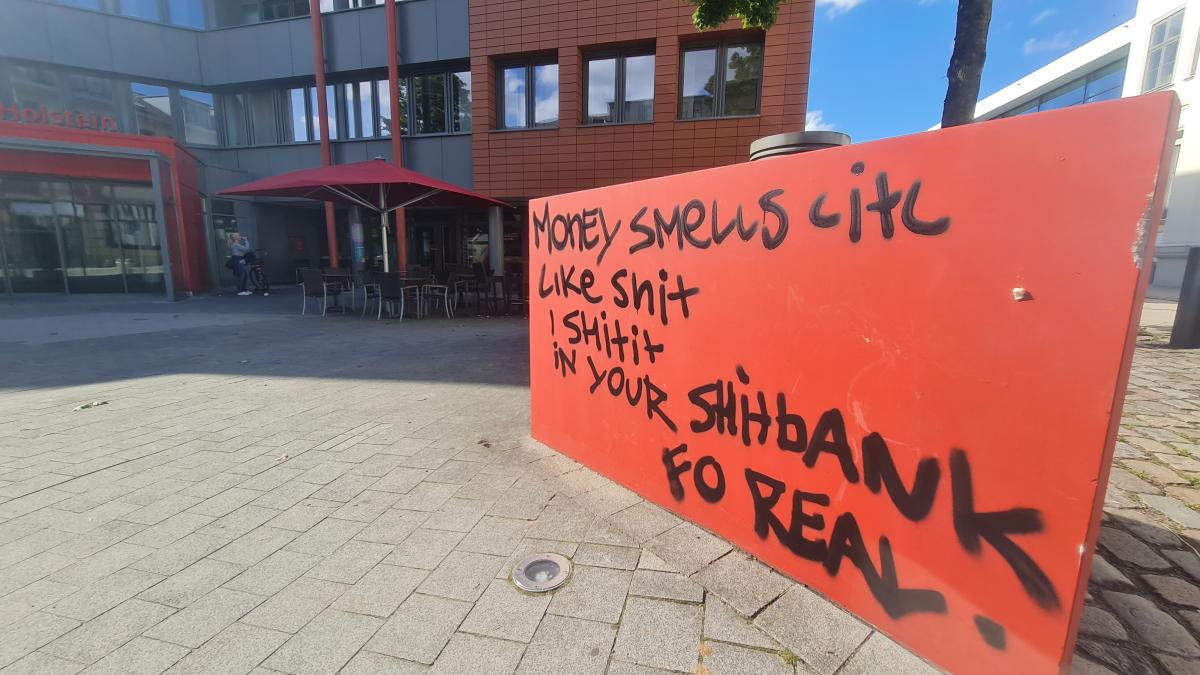 Holstein
MONEY SMELLS
LIKE Shit
I SHitit
iN YOUR SHitbANK
FO REAL.